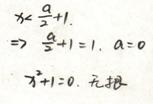 x< a/2 +1.
=> a/2 +1=1. a=0
x²+1=0. 无根